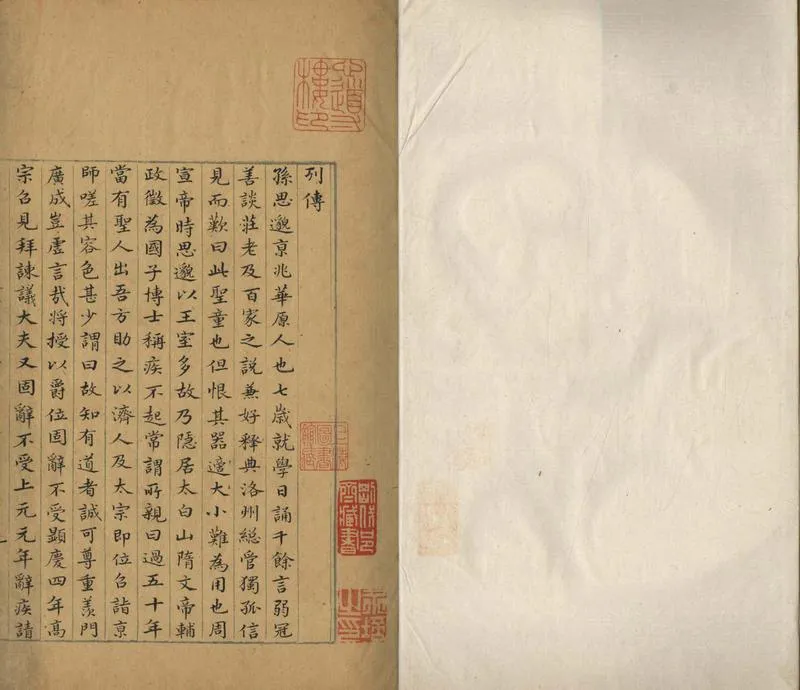 列傳
孫思邈京兆華原人也七歲就學日誦千餘言弱冠
善談莊老及百家之說兼好釋典洛州総管獨孤信
見而歎曰此聖童也但恨其器適大小難為用也周
宣帝時思邈以王室多故乃隱居太白山隋文帝輔
政徵為國子博士稱疾不起常謂所親曰過五十年
當有聖人出吾方助之以濟人及太宗即位召詣京
師嗟其容色甚少謂曰故知有道者誠可尊重羡門
廣成豈虛言哉將授以爵位固辭不受顯慶四年高
宗召見拜諫議大夫又固辭不受上元元年辭疾請